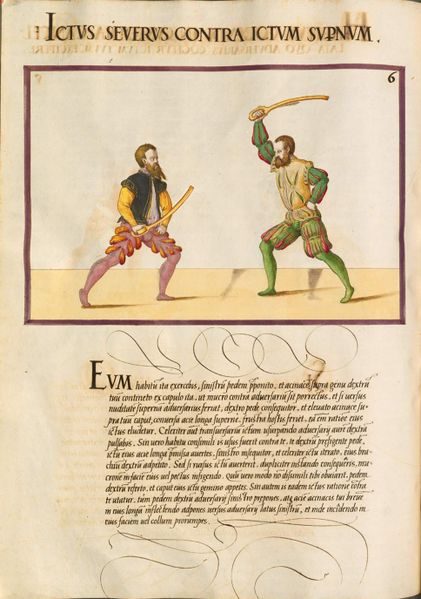 ICTVS SEVERVS CONTRA ICTVM SVPNVM.
6
EVM habitū ita exercebis, sinistrū pedem pponito, et acinacē supra genu dextrū
tuū contineto ex capulo ita, ut mucro contra adversariū sit porrectus, et si versus
nuditatē supernā adversarius feriat, dextro pede consequitor, et elevato acinace su-
pra tuū caput, conversa acie longa superne, frustra hostis feriet, nā em ratione eius
ictus eluditur. Celeriter aūt transversariū ictum usurpando adversarij aurē dextrā
pulsabis. Sin vero habitu consimili is usus fuerit contra te, te dextrū presigente pede,
ictū eius acie longa prius avertes, sinistro insequitor, et celeriter ictu iterato, eius bra-
chiū dextrū adpetito. Sed si rursus ictū averterit, dupliciter instando consequeris, mu-
crone in facie eius vel pectus infigendo. Qui vero modo nō dissimili tibi obviarit, pedem
dextrū referto, et caput eius ictu gemino appetes. Sin autem is eadem ictus ratione cōtra
te utatur, tum pedem dextrū adversarij sinistro prepones, atq acie acinacis tui brevi
in eius longā inflectendo adpones versus adversarij latus sinistrū, et inde incidendo in
eius faciem vel collum prorumpes.